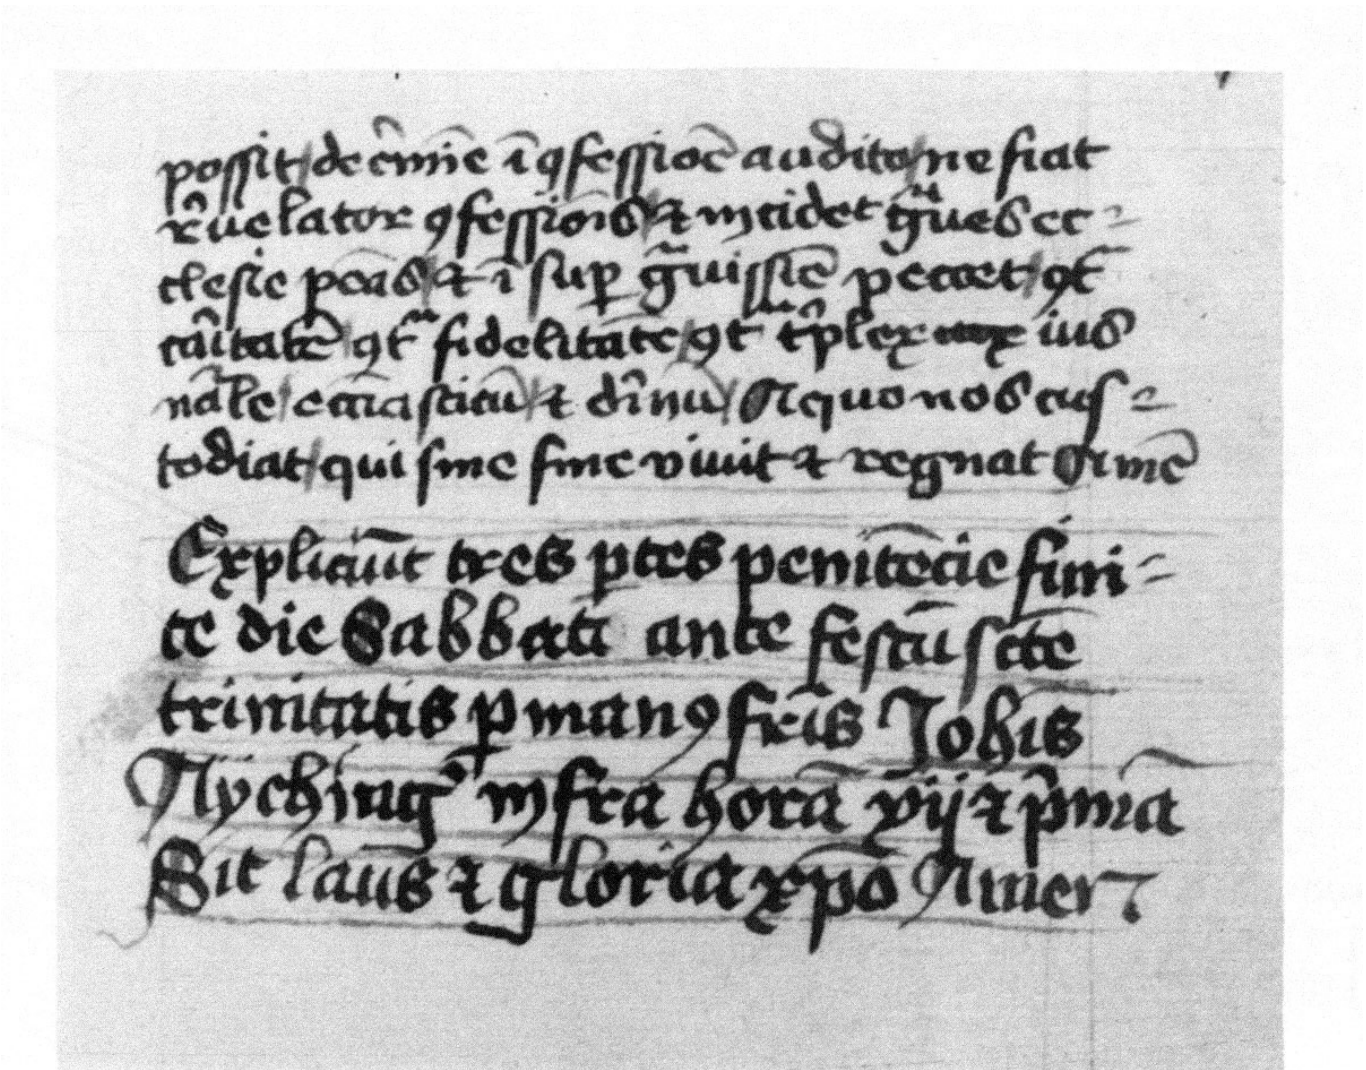 possit de c̄mīe ī ꝯfessiōe audito ne fiat
r̄uelator ꝯfessiōis ⁊ incidet gᵃues ec-
clesie penas ⁊ ī suꝑ gᵃuissīe peccet ꝯtᵃ
caritatē ꝯtᵃ fidelitatē ꝯtᵃ tͥplex ius
nāle ecc̄iasticū ⁊ dīnū A quo nos cus-
todiat qui sine fine viuit ⁊ regnat Amē
Expliciūt tres ꝑtes penitēcie fini-
te die Sabbati ante festū sctē
trinitatis ꝑ manꝯ fr̄is Joh̄is
infra horā vij ⁊ pͥmā
Sit laus ⁊ gloria xp̄o Amen